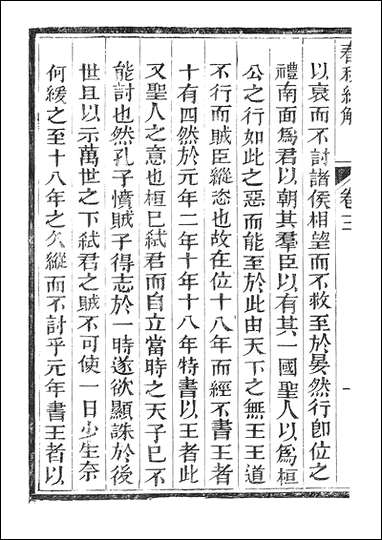 春秋經解 卷三 一
以衰而不討諸侯相望而不救至於晏然行卽位之
禮南面爲君以朝其羣臣以有其一國聖人以爲桓
公之行如此之惡而能至於此由天下之無王王道
不行而賊臣縱恣也故在位十八年而經不書王者
十有四然於元年二年十年十八年特書以王者此
又聖人之意也桓已弑君而自立當時之天子已不
能討也然孔子憤賊子得志於一時遂欲顯誅於後
世且以示萬世之下弑君之賊不可使一日少生奈
何緩之至十八年之久縱而不討乎元年書王者以